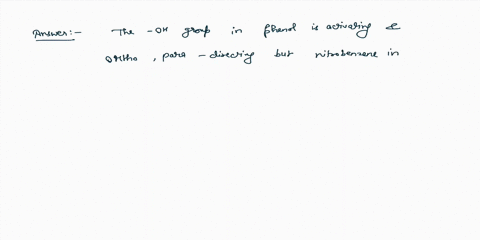 Answer:- The -OH group in phenol is activating &
ortho, para - directing but nitrobenzene in